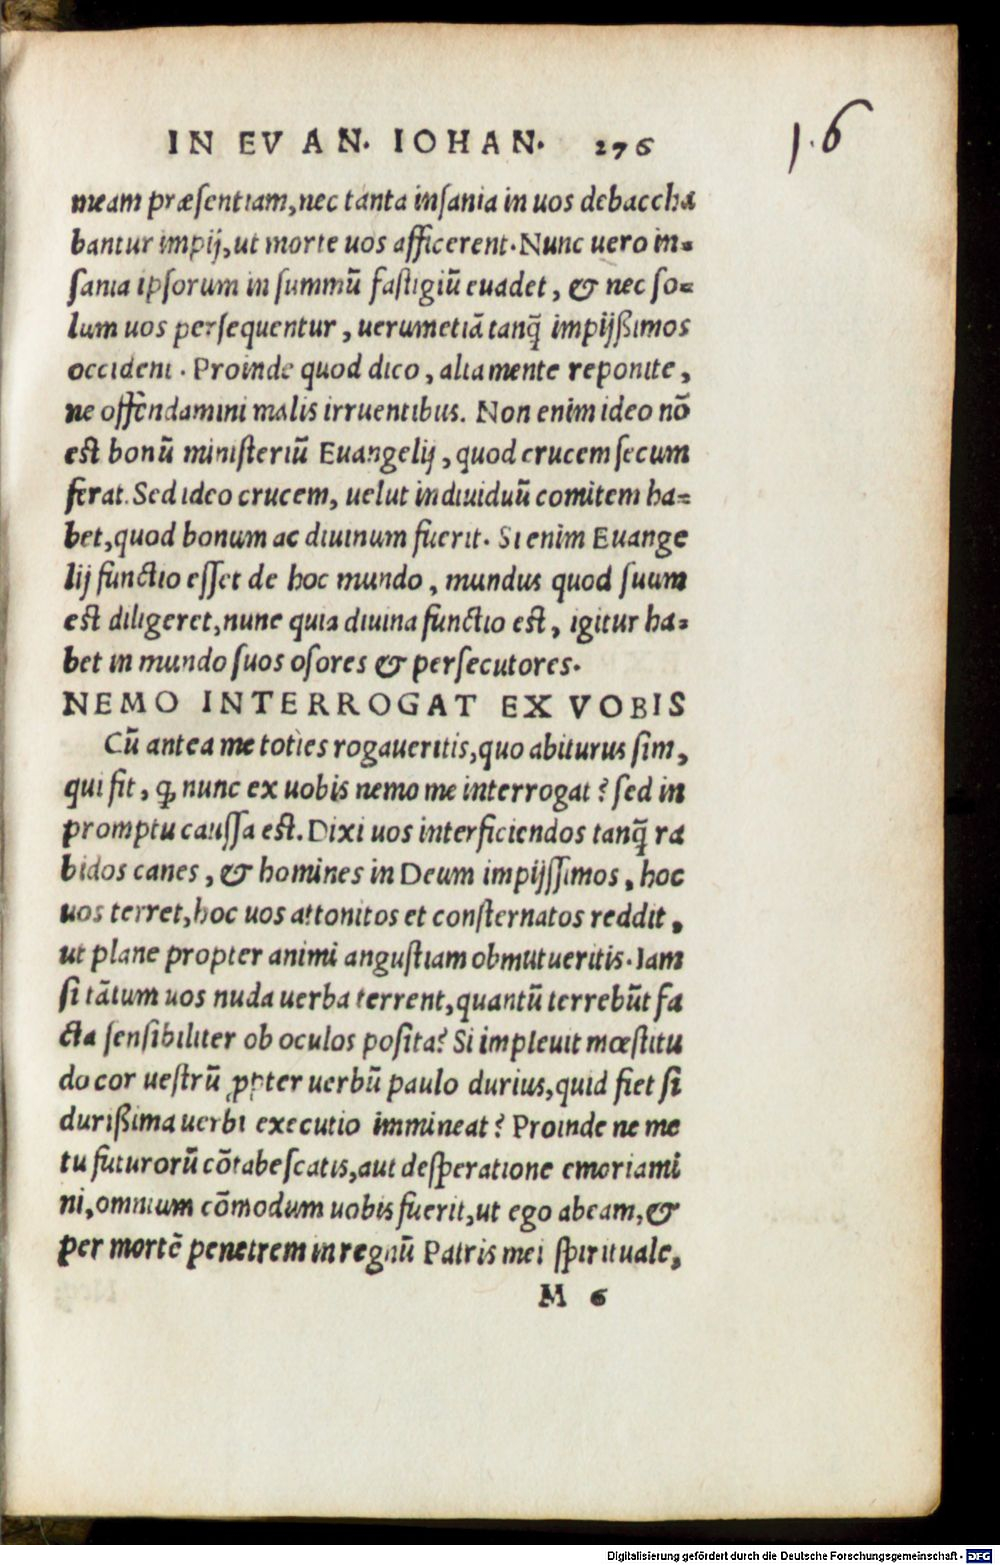 IN EVAN. IOHAN. 276
16
meam præsentiam, nec tanta insania in uos debaccha
bantur impij, ut morte uos afficerent. Nunc uero in-
sania ipsorum in summũ fastigiũ euadet, & nec so-
lum uos persequentur, uerumetiã tanq̃ impijßimos
occident. Proinde quod dico, alta mente reponite,
ne offendamini malis irruentibus. Non enim ideo nõ
est bonũ ministeriũ Euangelij, quod crucem secum
ferat. Sed ideo crucem, uelut indiuiduũ comitem ha-
bet, quod bonum ac diuinum fuerit. Si enim Euange
lij functio esset de hoc mundo, mundus quod suum
est diligeret, nunc quia diuina functio est, igitur ha-
bet in mundo suos osores & persecutores.
NEMO INTERROGAT EX VOBIS
Cũ antea me toties rogaueritis, quo abiturus sim,
qui fit, ꝙ nunc ex uobis nemo me interrogat? sed in
promptu caussa est. Dixi uos interficiendos tanq̃ ra
bidos canes, & homines in Deum impijssimos, hoc
uos terret, hoc uos attonitos et consternatos reddit,
ut plane propter animi angustiam obmutueritis. Iam
si tãtum uos nuda uerba terrent, quantũ terrebũt fa
cta sensibiliter ob oculos posita? Si impleuit mœstitu
do cor uestrũ ꝓpter uerbũ paulo durius, quid fiet si
durißima uerbi executio immineat? Proinde ne me
tu futurorũ cõtabescatis, aut desperatione emoriami
ni, omnium cõmodum uobis fuerit, ut ego abeam, &
per mortẽ penetrem in regnũ Patris mei spirituale,
M 6
Digitalisierung gefördert durch die Deutsche Forschungsgemeinschaft - DFG